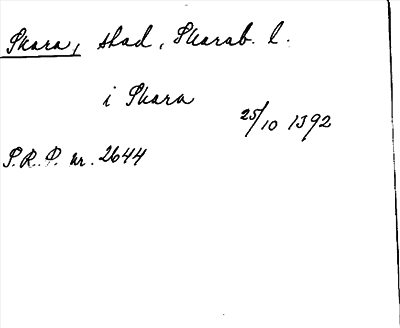 Skara, stad, Skarab. l.
i Skara
25/10 1392
S.R.P. nr. 2644